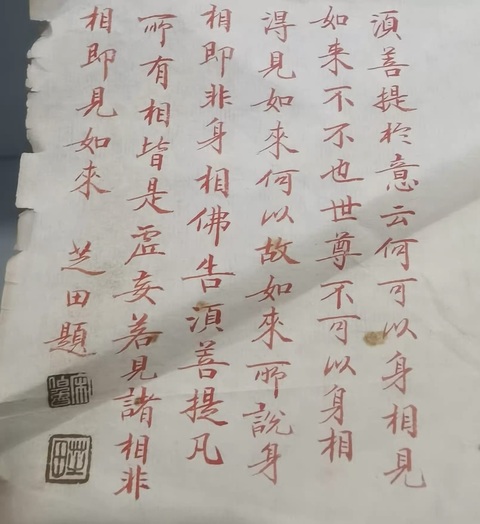 湏菩提於意云何可以身相見
如来不不也世尊不可以身相
得見如來何以故如來所說身
相即非身相佛告湏菩提凡
所有相皆是虛妄若見諸相非
相即見如來 芝田題